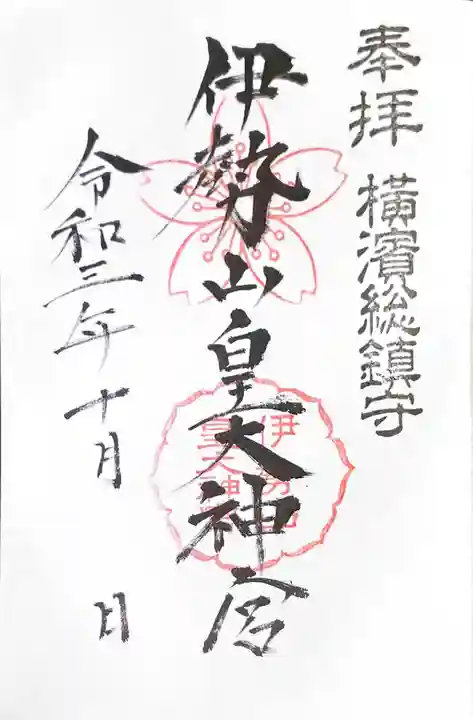 奉拝 横濱総鎮守
伊勢山皇大神宮
伊勢山
皇大神宮
令和三年十月 日